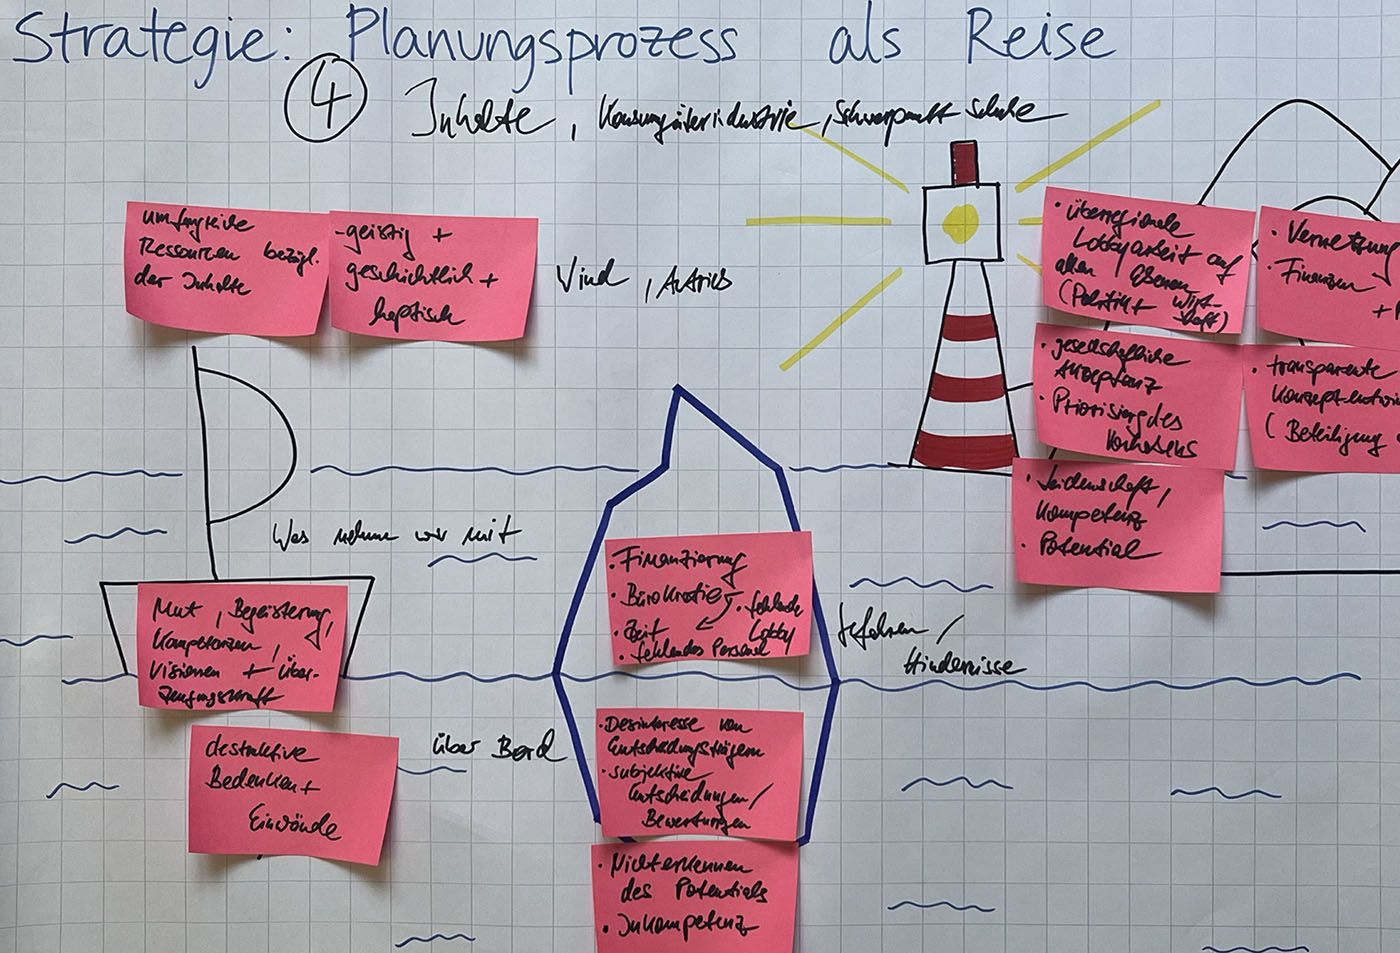 Strategie: Planungsprozess als Reise
④ Inhalte, Konsumgüterindustrie, Schwerpunkt Schuhe
umfangreiche
Ressourcen bezügl.
der Inhalte
-geistig +
geschichtlich +
haptisch
Wind, Antrieb
• überregionale
Lobbyarbeit auf
allen Ebenen
(Politik + Wirt-
schaft)
• Vernetzung
• Finanzen
+
• gesellschaftliche
Akzeptanz
• Priorisierg des
Vorhabens
• transparente
Konzeptentwi
(Beteiligung
• Leidenschaft,
Kompetenz
• Potential
Was nehmen wir mit
Mut, Begeisterung,
Kompetenzen,
Visionen + Über-
zeugungskraft
über Bord
destruktive
Bedenken +
Einwände
• Finanzierung
• Bürokratie
• fehlende
Lobby
• Zeit
• fehlendes Personal
Gefahren /
Hindernisse
• Desinteresse von
Entscheidungsträgern
• subjektive
Entscheidungen/
Bewertungen
• Nichterkennen
des Potentials
• Inkompetenz